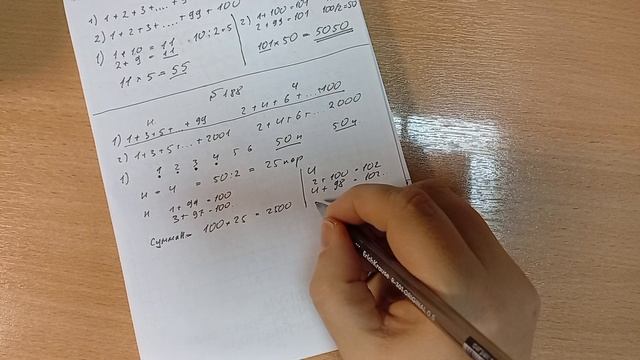 1) 1+2+3+....+9
2) 1+2+3+....+99+100
1) 1+10=11 10:2=5
2+9=11
11×5=55
2) 1+100=101 100/2=50
2+99=101
101×50=5050
№188
н. ч
1) 1+3+5+...+99 2+4+6+...+100
2) 1+3+5+...+2001 2+4+6+...2000
1) 1 2 3 4 5 6 50н 50ч
н = ч = 50:2 = 25 пар
н 1+99=100
3+97=100.
Сумма н= 100×25=2500
ч
2+100=102
4+98=102.
ErichKrause R-301 ORIGINAL 0.5